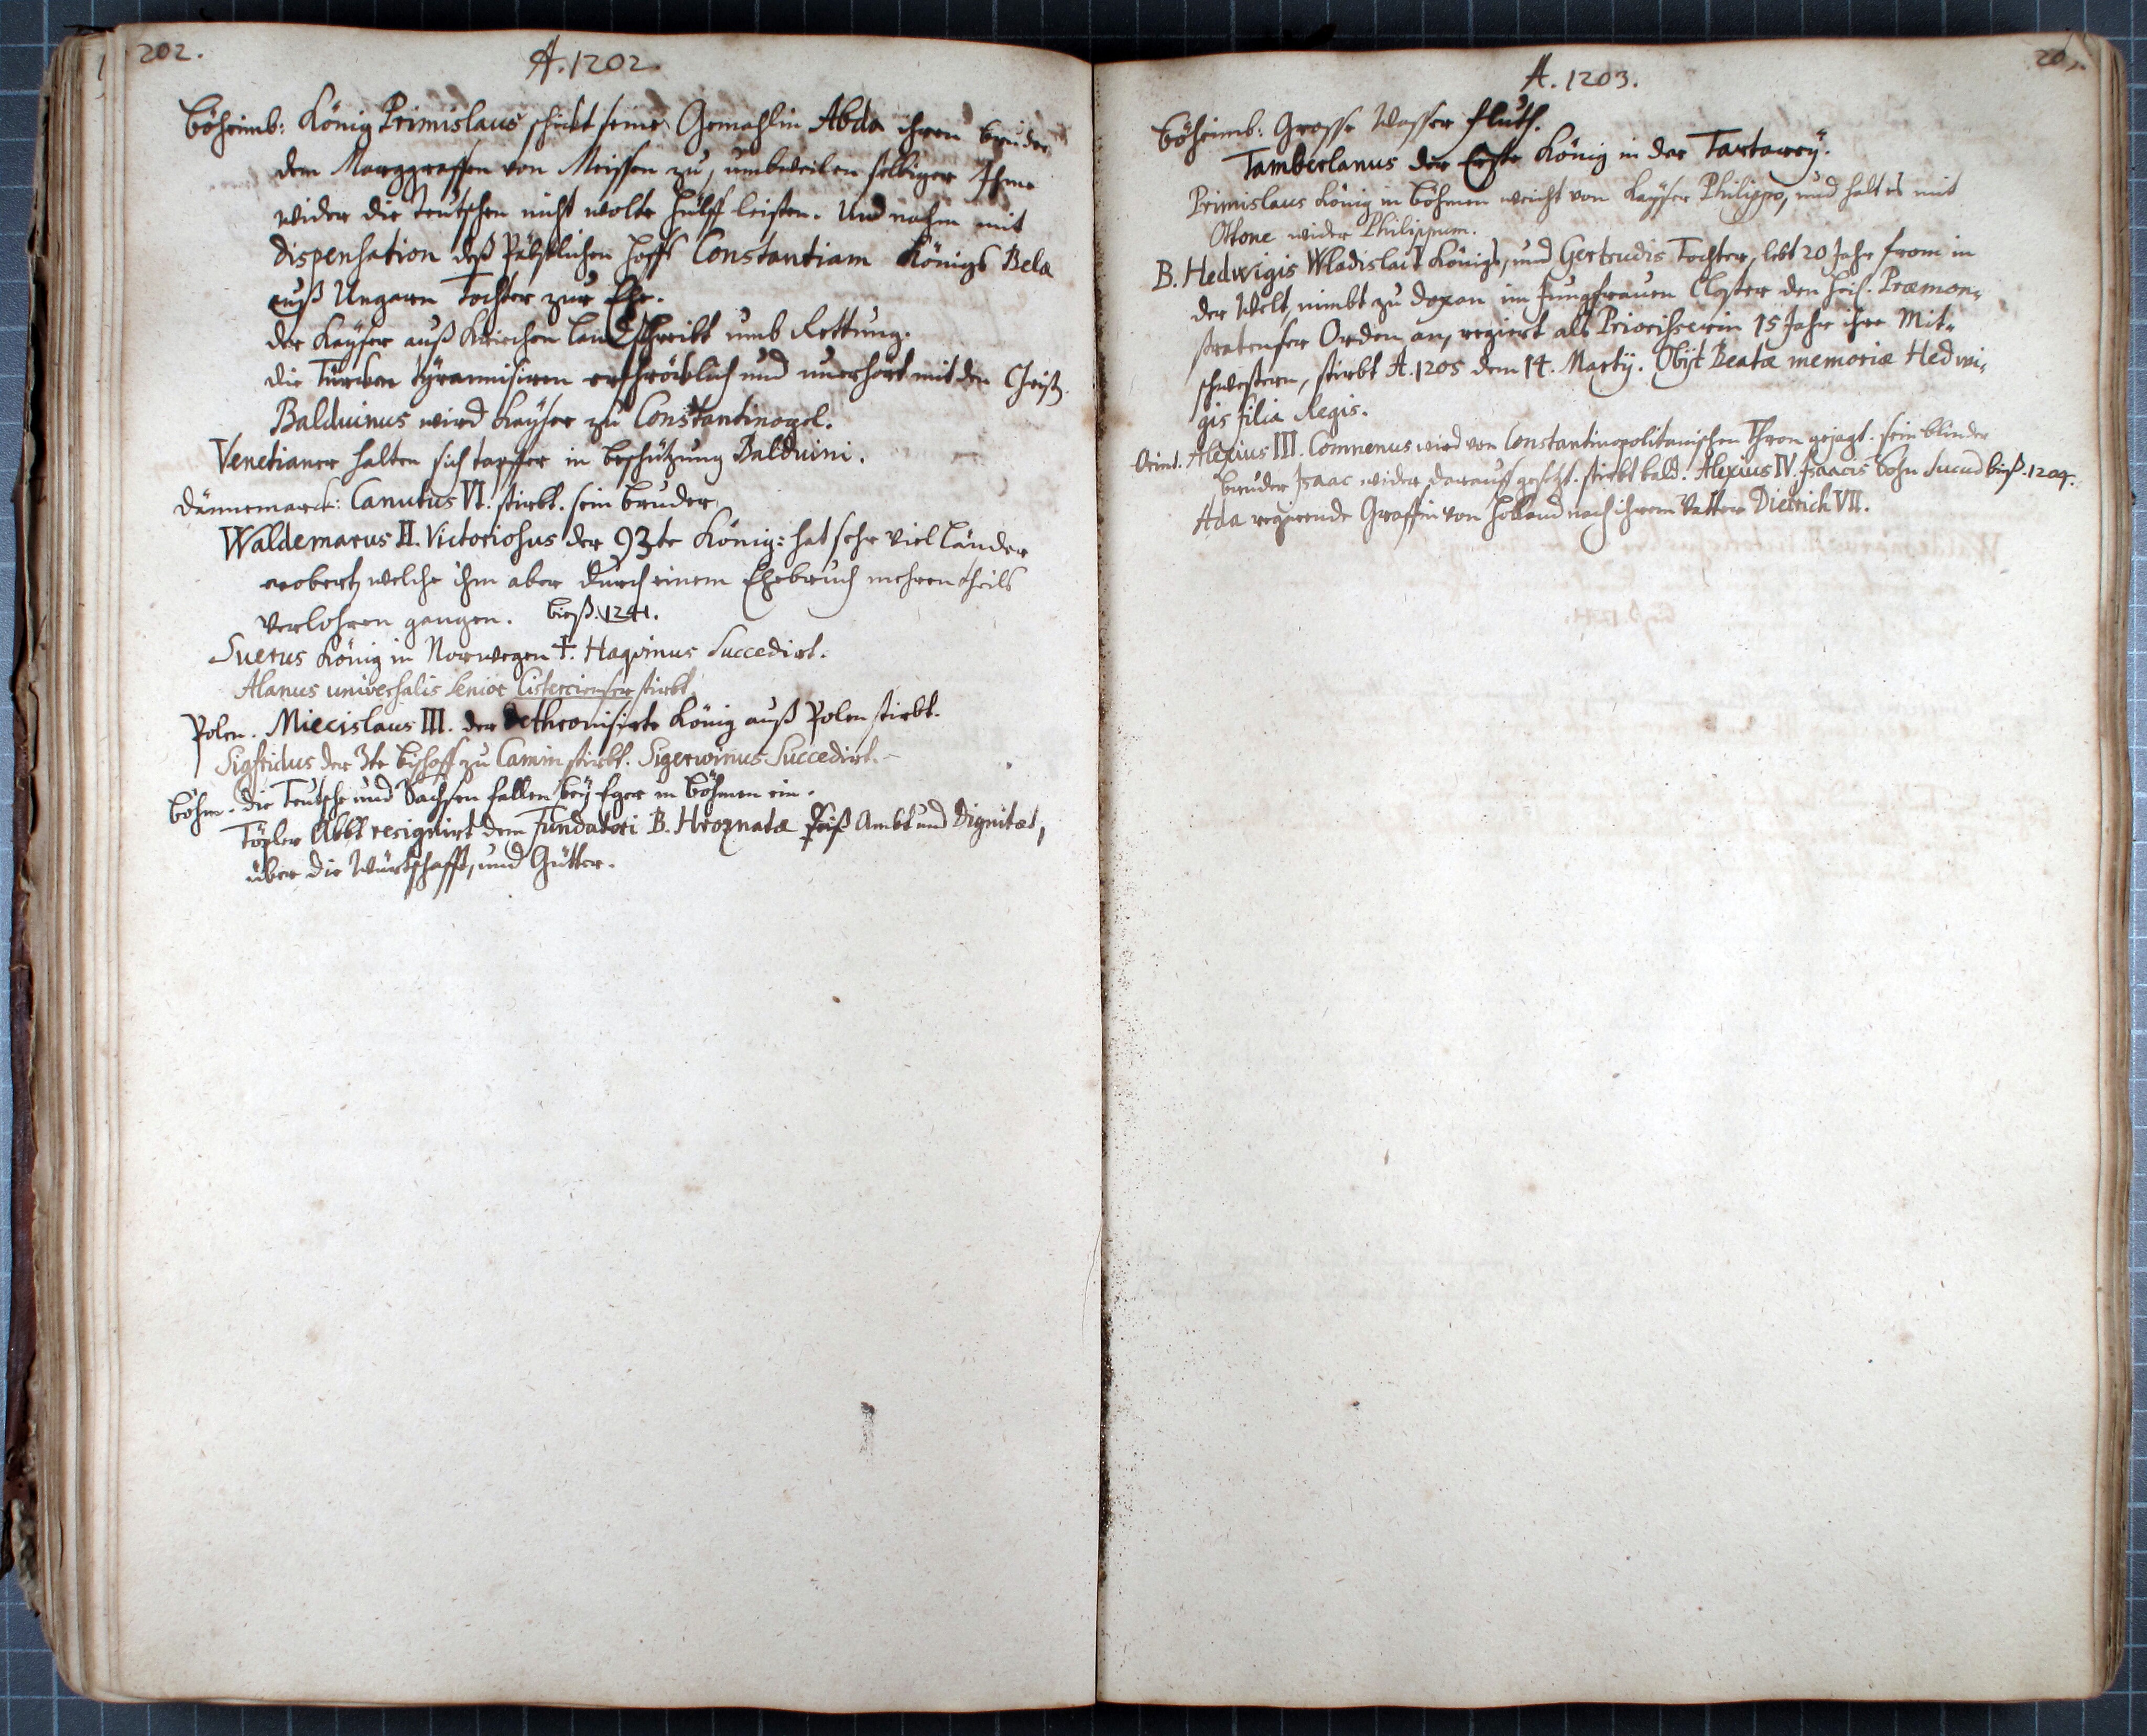 202.
A. 1202.
Böheimb: König Primislaus schickt seine Gemahlin Abda ihren bruder
dem Marggraffen von Meissen zu, umbweilen selbiger Ihme
wider die Teutschen nicht wolte hülff leisten. Und nahm mit
dispensation deß Päbstlichen hoffs Constantiam Königs Belæ
auß Ungarn Tochter zur Ehe.
der Kayser auß Kriechen land schreibt umb Rettung.
die Türcken tyrannisiren erschröcklich und unerhört mit den Christ.
Balduinus wird Kayser zu Constantinopel.
Venetianer halten sich tapffer in beschützung Balduini.
Dännemarck: Canutus VI. stirbt. sein bruder
Waldemarus II. Victoriosus der 93te König: hat sehr viel länder
erobert, welche ihm aber durch einem Ehebruch mehrentheils
verlohren gangen. bieß. 1241.
Suerus König in Norwegen †. Haqvinus Succedirt.
Alanus universalis Senior Cistercienser stirbt
Polen. Miecislaus III. der dethronisirte König auß Polen stirbt.
Sigfridus der 3te bischoff zu Camin stirbt. Sigerwinus Succedirt.
Böhm. die Teutsche und Sachsen fallen bey Eger in Böhmen ein.
Töpler Abbt resignirt dem Fundatori B. Hroznatæ Ambt und Dignitæt,
über die Würtschafft, und Gütter.
A. 1203.
Böheimb: Grosse Wasser fluth.
Tamberlanus der Erste König in der Tartarey.
Primislaus König in Böhmen weicht von Kayser Philippo, und halt es mit
Ottone wider Philippum.
B. Hedwigis Wladislai Königs, und Gertrudis Tochter, lebt 20 Jahr from in
der Welt, nimbt zu Doxan im Jungfrauen Closter den heil. Præmon-
stratenser Orden an, regiert als Priorißerin 15 Jahr ihre Mit-
schwestern, stirbt A. 1205 dem 14. Martij. Obijt Beatæ memoriæ Hedwi-
gis filia Regis.
Orient. Alexius III. Comnenus wird von Constantinopolitanischen Thron gejagt. sein blinder
bruder Isaac wider darauf gesetzt. stirbt bald. Alexius IV. Isaacis Sohn Succed bieß. 1204.
Ada regirende Graffin von Holland nach ihrem Vatter Dietrich VII.